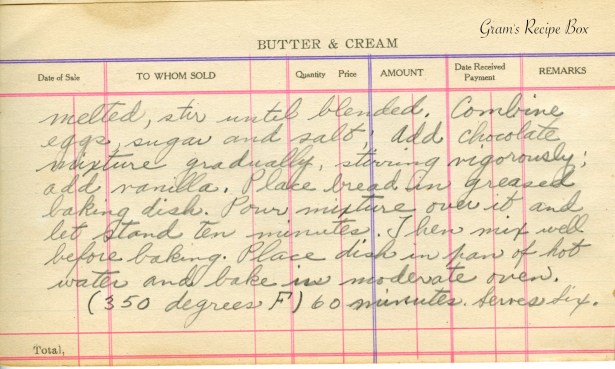 Gram's Recipe Box
BUTTER & CREAM
Date of Sale TO WHOM SOLD Quantity Price AMOUNT Date Received Payment REMARKS
melted, stir until blended. Combine
eggs, sugar and salt; Add chocolate
mixture gradually, stirring vigorously;
add vanilla. Place bread in greased
baking dish. Pour mixture over it and
let stand ten minutes. Then mix well
before baking. Place dish in pan of hot
water and bake in moderate oven.
(350 degrees F) 60 minutes. Serves Six.
Total,